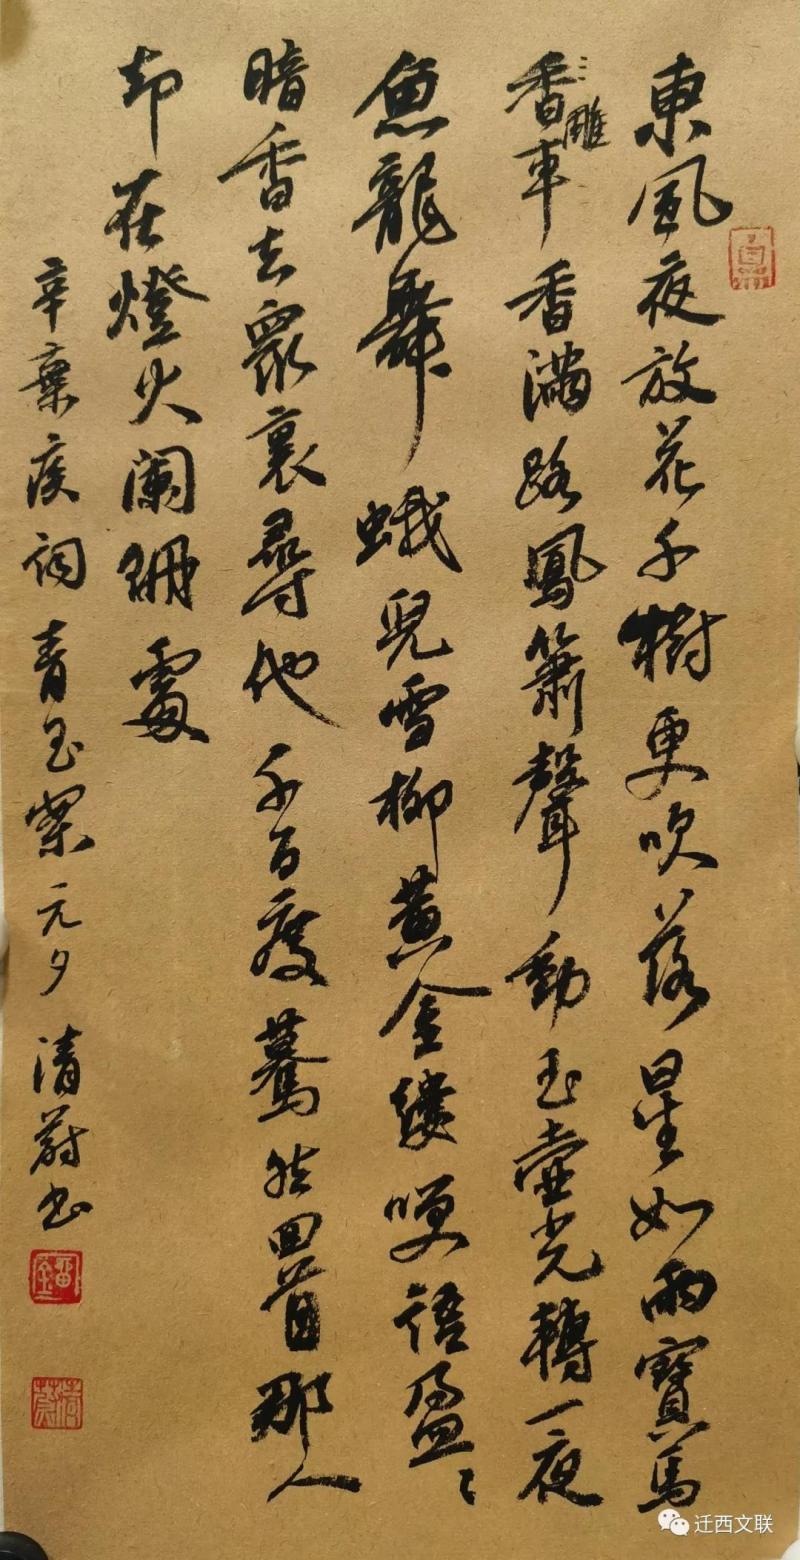 東風夜放花千樹更吹落星如雨寶馬
香車香滿路鳳簫聲動玉壺光轉一夜
雕
魚龍舞蛾兒雪柳黃金縷咲語盈〻
暗香去衆裏尋他千百度驀然回首那人
却在燈火闌珊處
辛棄疾詞青玉案元夕清蔚書
迁西文联